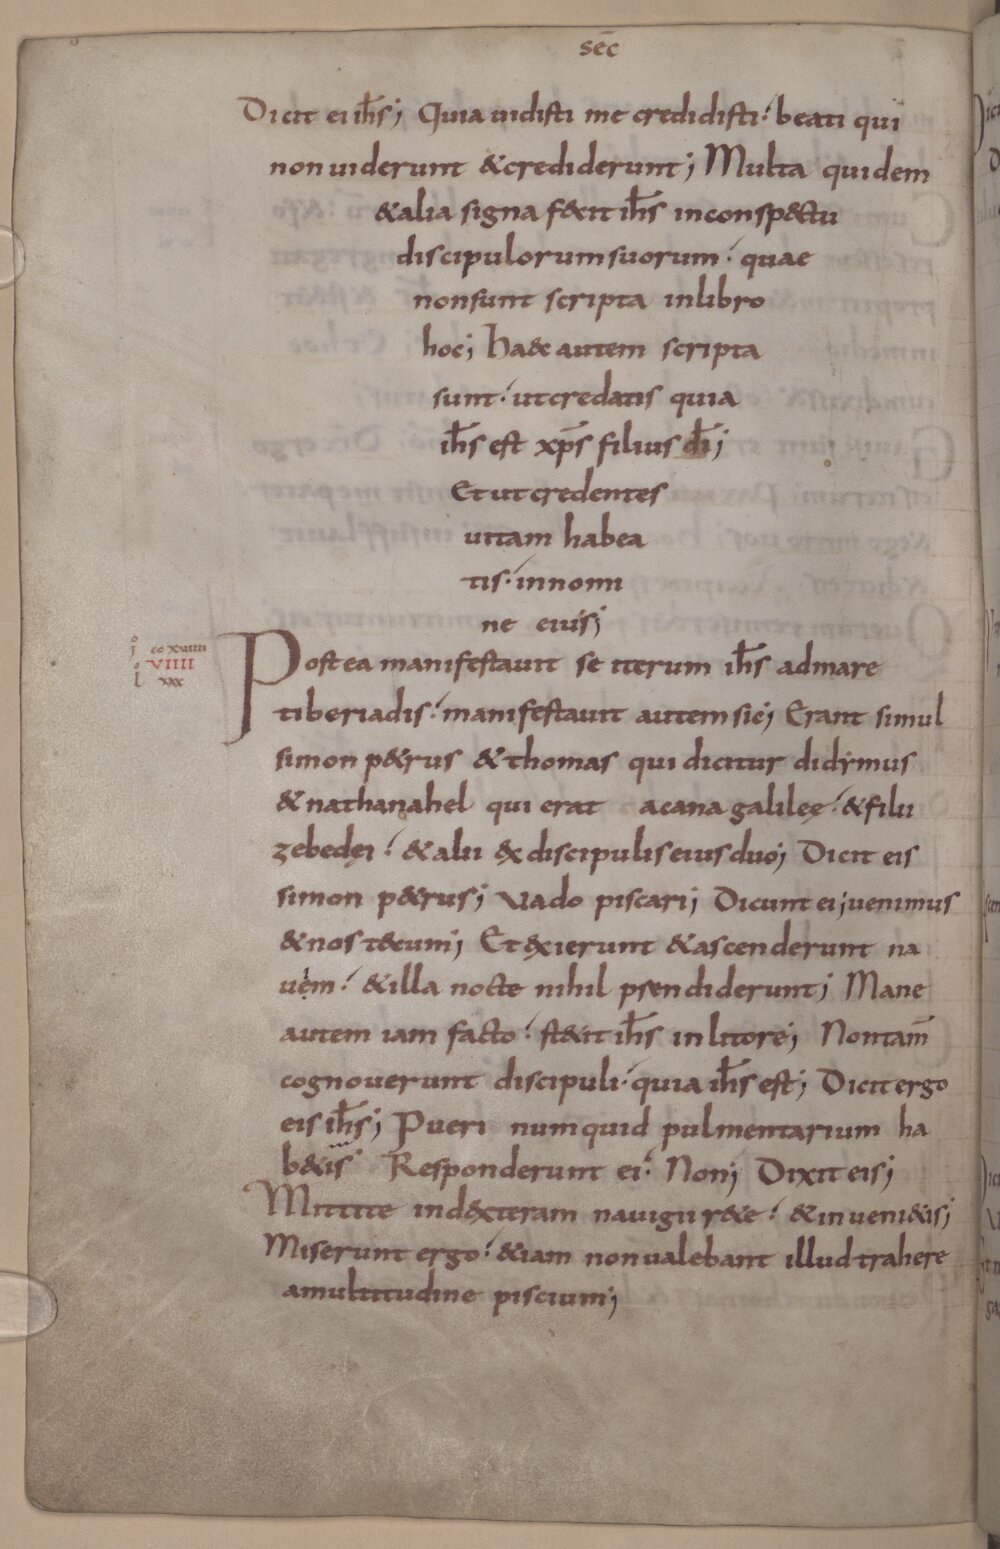 sēc
Dicit ei ih̄s; Quia uidisti me credidisti· beati qui
non uiderunt &crediderunt; Multa quidem
&alia signa fecit ih̄s inconsp&ctu
discipulorumsuorum· quae
nonsunt scripta inlibro
hoc; haec autem scripta
sunt· utcredatis quia
ih̄s est xp̄s filius d̄i;
Etutcredentes
uitam habea
tis· innomi
ne eius;
Postea manifestauit se iterum ih̄s admare
tiberiadis· manifestauit autemsic; Erant simul
simon p&rus &thomas qui dicitur didymus
&nathanahel qui erat acana galileę· &filii
zebedęi· &alii exdiscipuliseiusduo; Dicit eis
simon p&rus; Vado piscari; Dicunt ei; uenimus
&nos tecum; Etexierunt &ascenderunt na
uem· &illa nocte nihil prendiderunt; Mane
autem iam facto· st&it ih̄s inlitore; Nontam̄
cognouerunt discipuli· quia ih̄s est; Dicitergo
eis ih̄s; Pueri numquid pulmentarium ha
b&is Responderunt ei· Non; Dixit eis;
Mittite indexteram nauigii r&e· &inueni&is;
Miserunt ergo· &iam nonualebant illudtrahere
amultitudine piscium;
VIIII
xxx